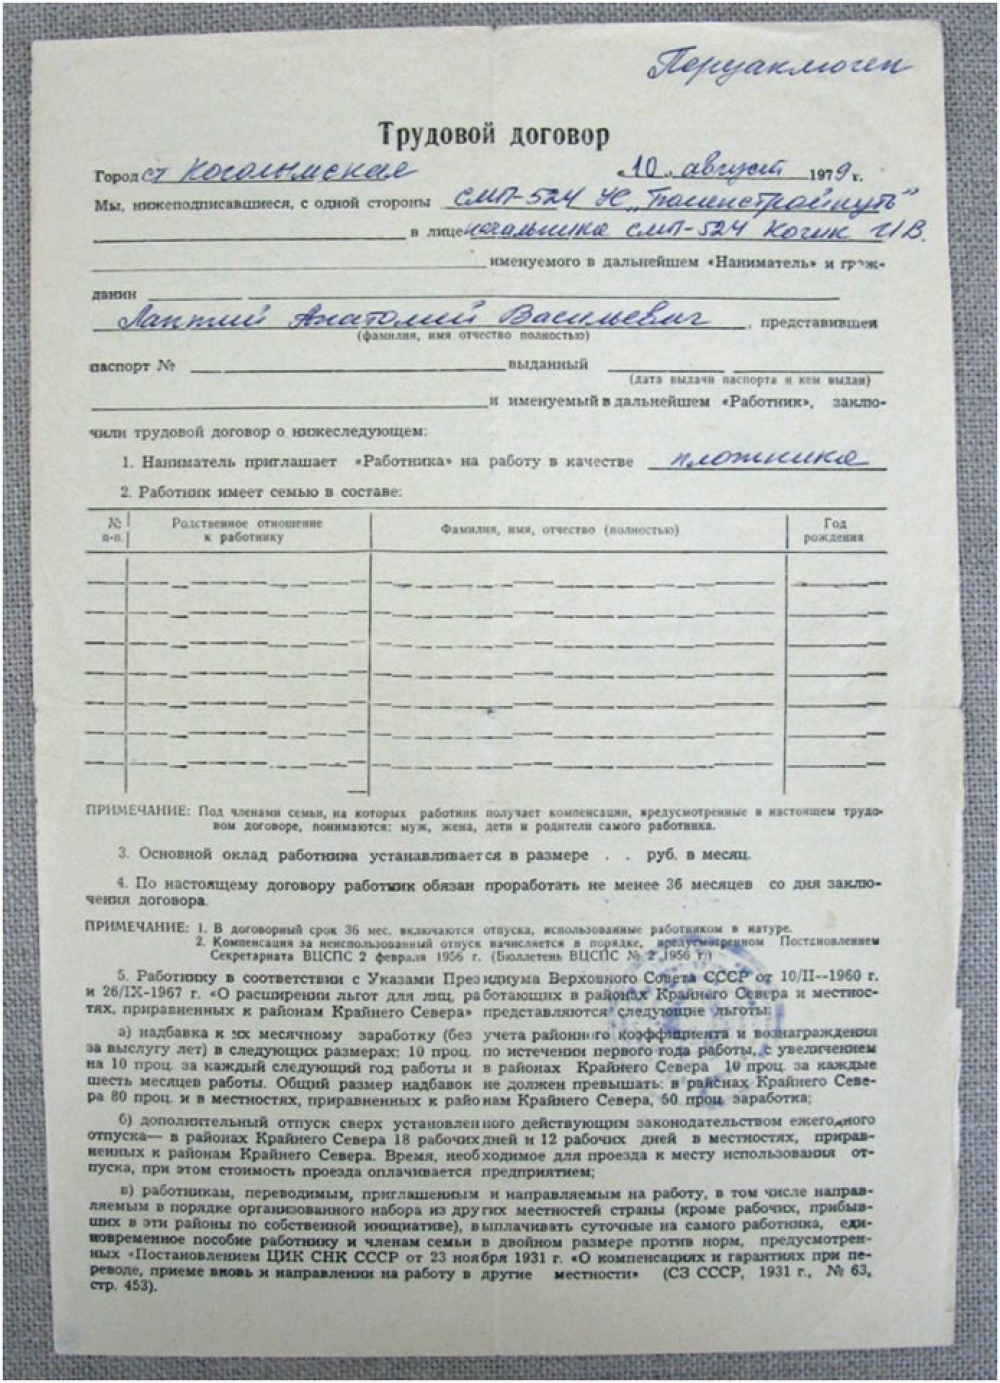 Перезаключен
Трудовой договор
Город ст Когалымская «10» август 1979 г.
Мы, нижеподписавшиеся, с одной стороны СМП-524 УС „Тюменстройпуть"
в лице начальника СМП-524 Когик И В.
именуемого в дальнейшем «Наниматель» и граж-
данин
Лаптий Анатолий Васильевич, представивший
(фамилия, имя отчество полностью)
паспорт № выданный
(дата выдачи паспорта и кем выдан)
и именуемый в дальнейшем «Работник», заклю-
чили трудовой договор о нижеследующем:
1. Наниматель приглашает «Работника» на работу в качестве плотника
2. Работник имеет семью в составе:
№ п-п. Родственное отношение к работнику Фамилия, имя, отчество (полностью) Год рождения
ПРИМЕЧАНИЕ: Под членами семьи, на которых работник получает компенсации, предусмотренные в настоящем трудо-
вом договоре, понимаются: муж, жена, дети и родители самого работника.
3. Основной оклад работнина устанавливается в размере . . руб. в месяц.
4. По настоящему договору работник обязан проработать не менее 36 месяцев со дня заклю-
чения договора.
ПРИМЕЧАНИЕ: 1. В договорный срок 36 мес. включаются отпуска, использованные работником в натуре.
2. Компенсация за неиспользованный отпуск начисляется в порядке, предусмотренном Постановлением
Секретариата ВЦСПС 2 февраля 1956 г. (Бюллетень ВЦСПС № 2 1956 г.)
5. Работнику в соответствии с Указами Президиума Верховного Совета СССР от 10/II--1960 г.
и 26/IX-1967 г. «О расширении льгот для лиц, работающих в районах Крайнего Севера и местнос-
тях, приравненных к районам Крайнего Севера» представляются следующие льготы:
а) надбавка к их месячному заработку (без учета районного коэффициента и вознаграждения
за выслугу лет) в следующих размерах: 10 проц. по истечении первого года работы, с увеличением
на 10 проц. за каждый следующий год работы и в районах Крайнего Севера 10 проц. за каждые
шесть месяцев работы. Общий размер надбавок не должен превышать: в районах Крайнего Севе-
ра 80 проц. и в местностях, приравненных к районам Крайнего Севера, 50 проц. заработка;
б) дополнительный отпуск сверх установленного действующим законодательством ежегодного
отпуска— в районах Крайнего Севера 18 рабочих дней и 12 рабочих дней в местностях, прирав-
ненных к районам Крайнего Севера. Время, необходимое для проезда к месту использования от-
пуска, при этом стоимость проезда оплачивается предприятием;
в) работникам, переводимым, приглашенным и направляемым на работу, в том числе направ-
ляемым в порядке организованного набора из других местностей страны (кроме рабочих, прибыв-
ших в эти районы по собственной инициативе), выплачивать суточные на самого работника, еди-
новременное пособие работнику и членам семьи в двойном размере против норм, предусмотрен-
ных «Постановлением ЦИК СНК СССР от 23 ноября 1931 г. «О компенсациях и гарантиях при пе-
реводе, приеме вновь и направлении на работу в другие местности» (СЗ СССР, 1931 г., № 63,
стр. 453).